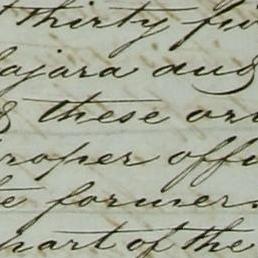 thirty fiv
lajara and
& these ori
proper offi
te former.
part of the